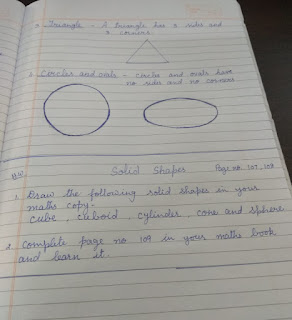 Triangle - A triangle has 3 sides and
3 corners
Circles and ovals - circles and ovals have
no sides and no corners
H.W. Solid Shapes Page no. 107, 108
1. Draw the following solid shapes in your
maths copy.
cube, cuboid, cylinder, cone and sphere
2. Complete page no 109 in your maths book
and learn it.